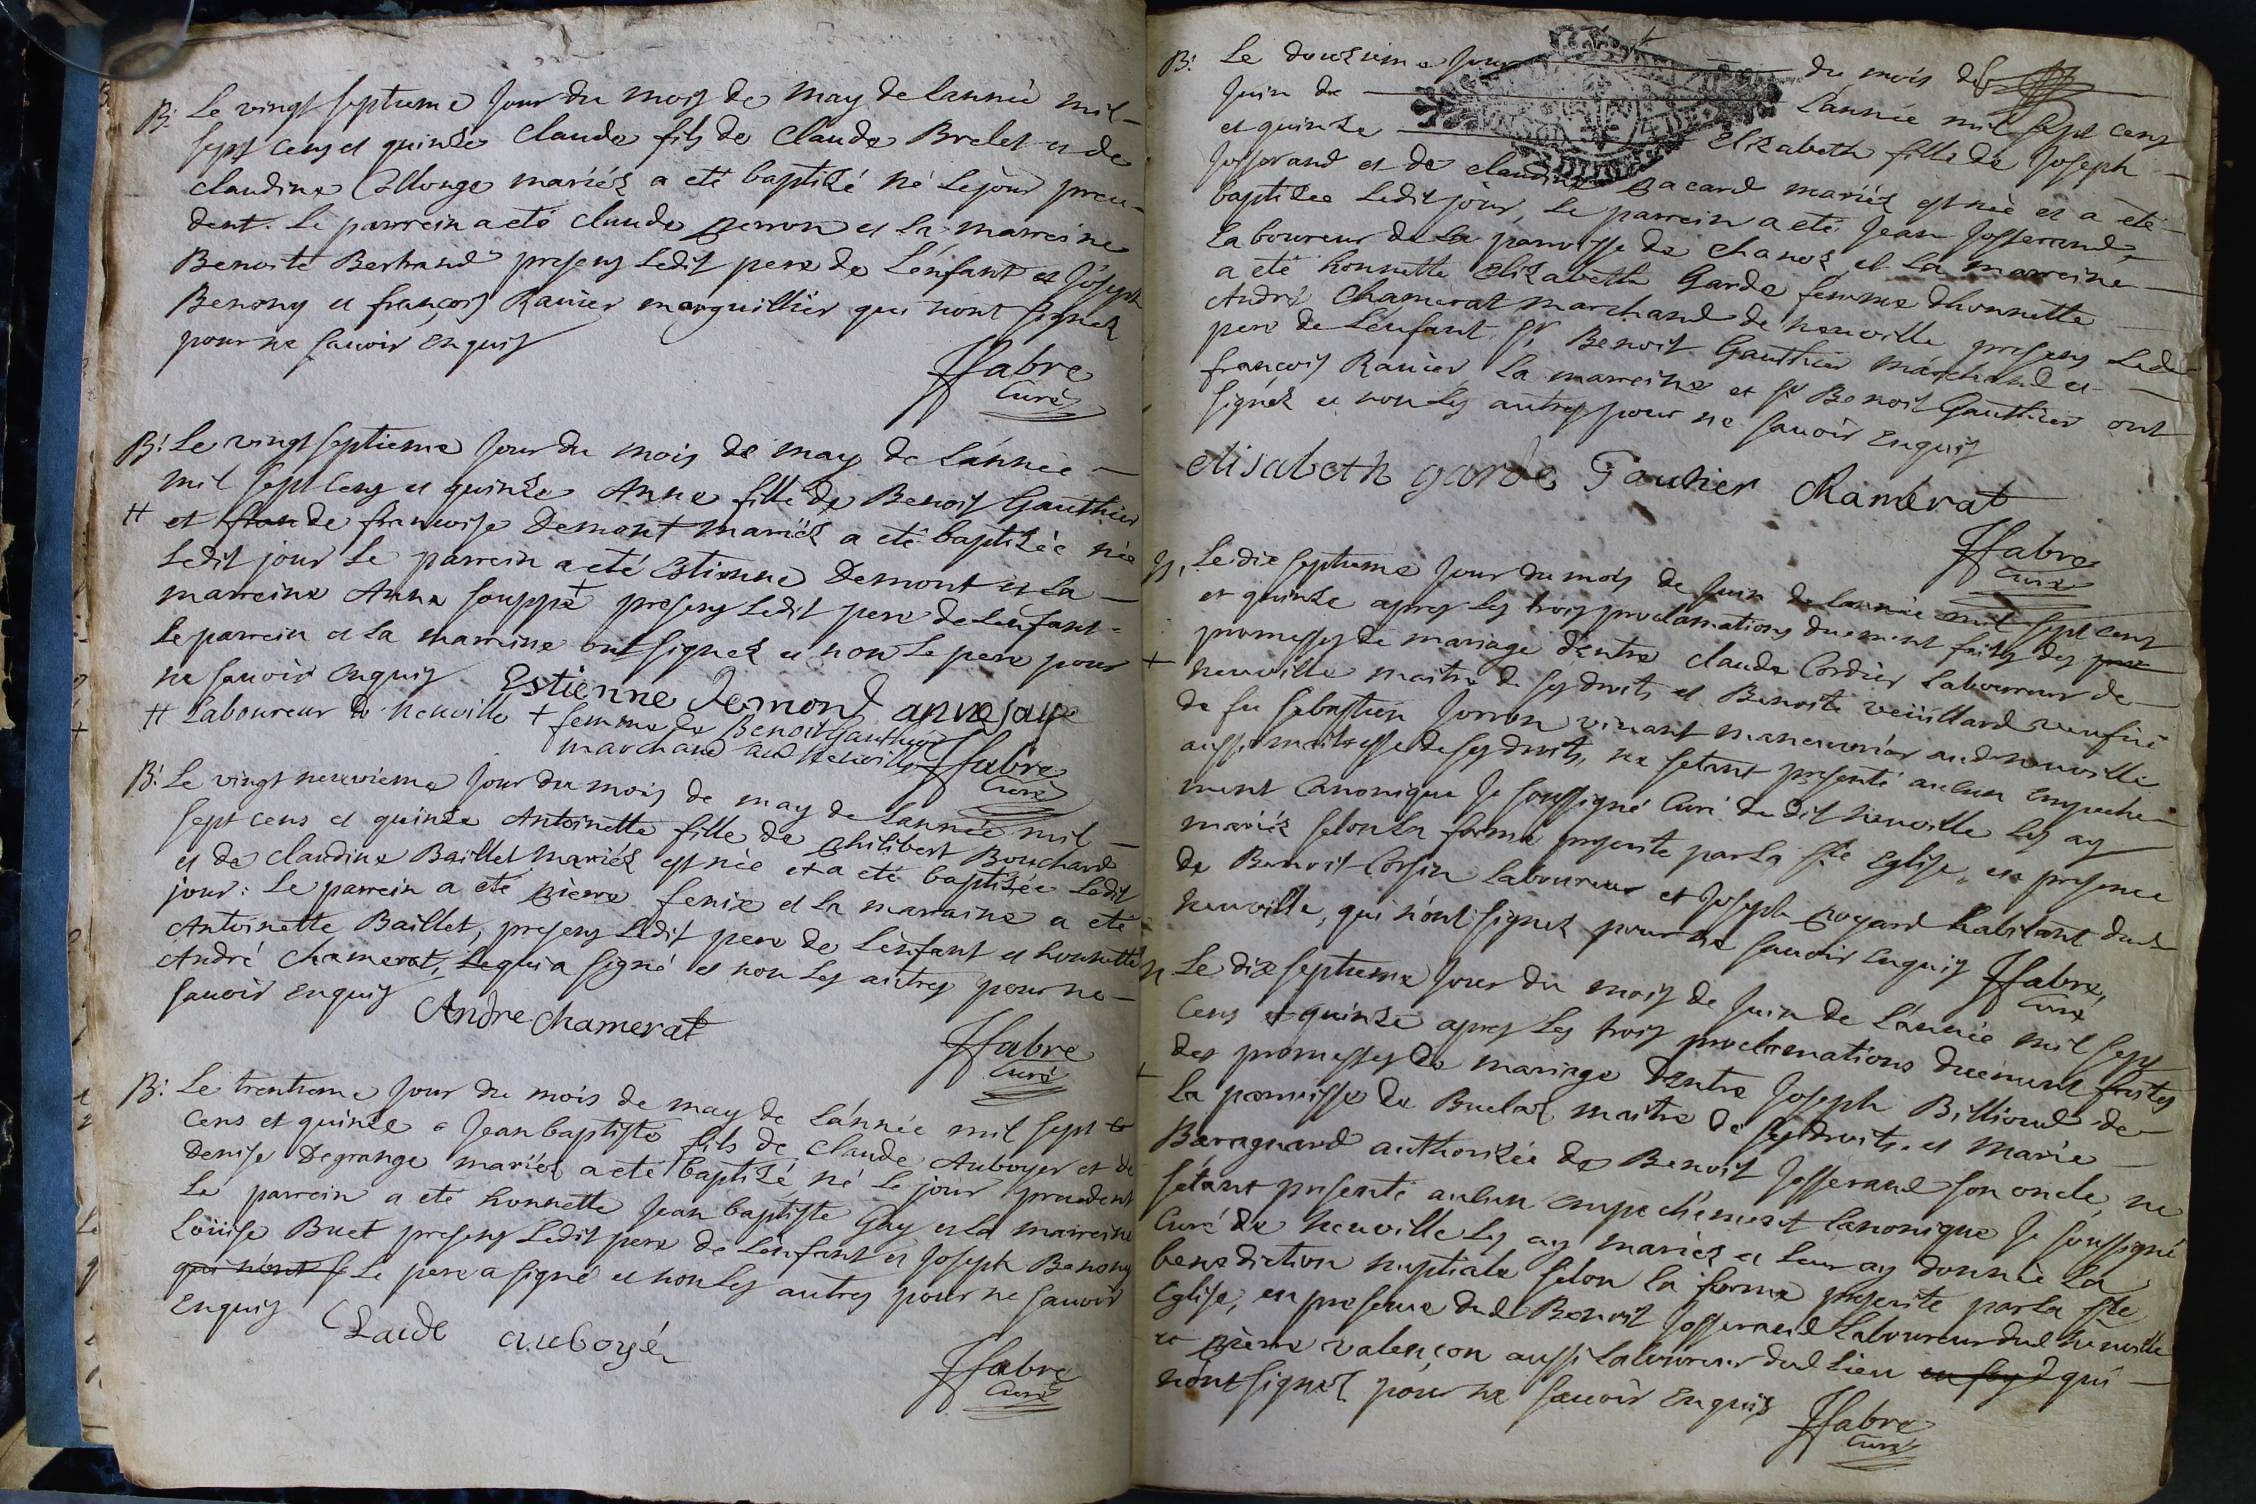 B: Le vingt septieme Jour du mois de may de Lannéé mil
sept cens et quinze Claude fils de Claude Brelet et de
claudine Collonge mariéz a eté baptizé né Le jour prece-
dent. Le parrein a eté claude perron et La marreine
Benoite Bertrand presens Ledit pere de L'enfant et Joseph
Benony et françois Rauier marguillier qui nont signez
pour ne sauoir enquis
ffabre
Curé
B: Le vingt septieme Jour du mois de may de L'année
mil sept cens et quinze Anne fille de Benoist Gauthier
# et de francoise Demont mariéz a eté baptizée née
Ledit jour Le parrein a eté Estienne Demont et La
marreine Anna souppe + presens Ledit pere de Lenfant
Le parrein et La marreine ont signez et non Le pere pour
ne sauoir enquis Estienne demont anne soupe
# Laboureur de Neuville + femme de Benoit Gauthier
marchand aud Neuville ffabre
Curé
B: Le vingt neuvieme Jour du mois de may de Lannéé mil
sept cens et quinze Antoinette fille de philibert Bouchard
et de claudine Baillet mariéz est née et a eté baptizée Ledit
jour: Le parrein a eté pierre fenix et La marraine a eté
Antoinette Baillet, presens Ledit pere de L'enfant et honnette
André Chamerat, Lequi a signé et non Les autres pour ne
sauoir enquis Andre chamerat
ffabre
Curé
B: Le trentieme Jour du mois de may de L'année mil sept
cens et quinze Jean baptiste fils de Claude Auboyer et de
Denise Degrange mariéz a eté baptizé né Le jour precedent
Le parrein a eté honnette Jean baptiste Guy et La marreine
Loüise Buet presens Ledit pere de L'enfant et Joseph Benony
qui n'ont s Le pere a signé et non Les autres pour ne sauoir
enquis Claude auboyé
ffabre
Curé
B: Le douzieme Jour du mois de
Juin de L'année mil sept cens
et quinze Elizabeth fille de Joseph
Josserand et de claudine pacard mariéz est née et a eté
baptizée Ledit jour, Le parrein a eté Jean Josserand,
Laboureur de La parroisse de chanoz et La marreine
a eté honnette Elizabeth Garde femme dhonnette
André Chamerat marchand de neuville presens Ledit
pere de L'enfant, Sr Benoit Gauthier marchand et
françois Rauier La marreine et Sr Benoit Gauthier ont
signéz et non Les autres pour ne sauoir enquis
elisabeth garde Gautier Chamérat
ffabre
Curé
Le dix septieme Jour du mois de Juin de Lannéé mil sept cens
et quinze apres Les trois proclamations duement faites des
promesses de mariage d'entre claude Cordier Laboureur de
neuville maitre de ses droits et Benoite veüillard veufue
de fu sebastien Jorron viuant maneuvrier aud neuville
aussi maitresse de ses droits, ne setant presenté aucun empeche-
ment Canonique Je soussigné Curé dudit Neuville Les ay
mariéz selon La forme prescrite par La ste Eglise, en presence
de Benoist Corsin Laboureur et Joseph poyard habitant dud
neuville, qui n'ont signez pour ne sauoir enquis ffabre,
Curé
Le dix septieme Jour du mois de Juin de L'année mil sept
Cens et quinze apres Les trois proclamations duëment faites
des promesses de mariage d'entre Joseph Billioud de
La parroisse de Buelaz maitre de ses droits. et Marie
Baragnard authorizée de Benoist Josserand son oncle, ne
s'étant presenté aucun empechement Canonique Je soussigné
Curé de Neuville Les ay mariéz et Leur ay donnée La
benediction nuptiale selon la forme prescrite par La ste
Eglise, en presence dud Benoist Josserand Laboureur dud neuville
et pierre valençon aussi Laboureur dud Lieu qui
n'ont signez pour ne sauoir enquis
ffabre
Curé